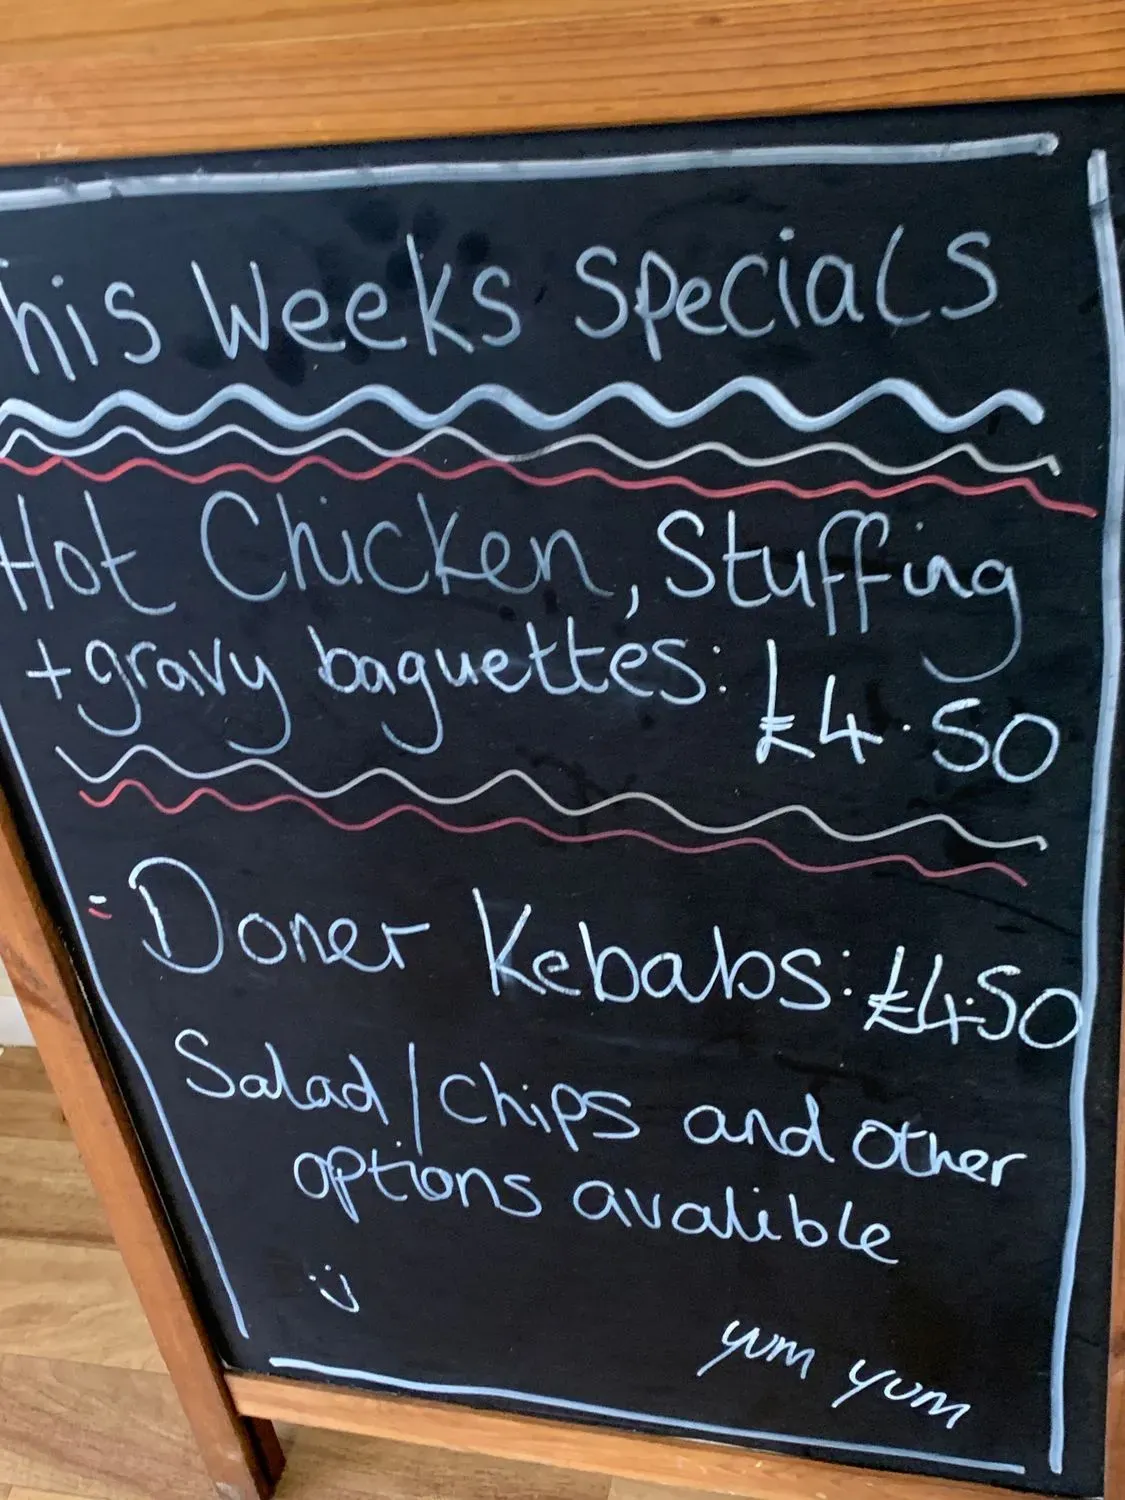 This Weeks Specials
Hot Chicken, Stuffing
+ gravy baguettes: £4.50
Doner Kebabs: £4.50
Salad/Chips and other
options avalible
:)
yum yum